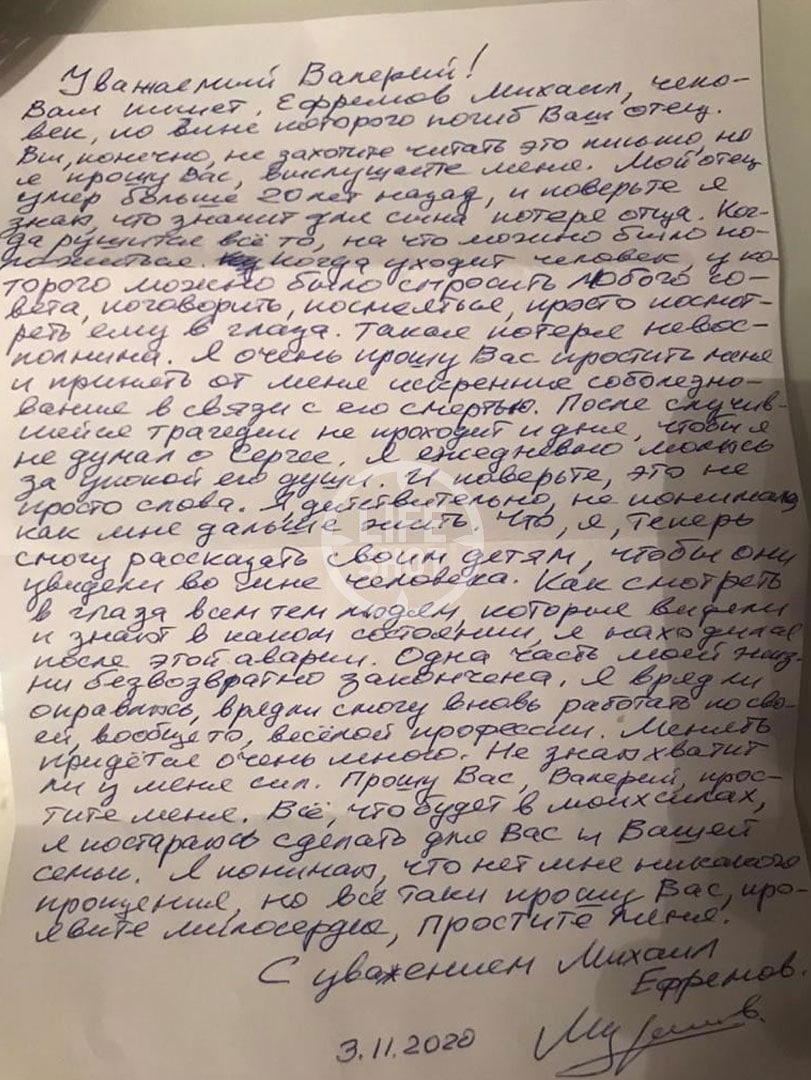 Уважаемый Валерий!
Вам пишет, Ефремов Михаил, чело-
век, по вине которого погиб Ваш отец.
Вы, конечно, не захотите читать это письмо, но
я прошу Вас, выслушайте меня. Мой отец
умер больше 20 лет назад, и поверьте я
знаю, что значит для сына потеря отца. Ког-
да рушится всё то, на что можно было по-
ложиться. Когда уходит человек, у ко
торого можно было спросить любого со-
вета, поговорить, посмеяться, просто посмот-
реть ему в глаза. Такая потеря невос-
полнима. Я очень прошу Вас простить меня
и принять от меня искренние соболезно-
вания в связи с его смертью. После случив-
шейся трагедии не проходит и дня, чтобы я
не думал о Сергее. Я ежедневно молюсь
за упокой его души. И поверьте, это не
просто слова. Я действительно, не понимаю
как мне дальше жить. Что, я, теперь
смогу рассказать своим детям, чтобы они
увидели во мне человека. Как смотреть
в глаза всем тем людям, которые видели
и знают в каком состоянии, я находился
после этой аварии. Одна часть моей жиз-
ни безвозвратно закончена. Я вряд ли
оправлюсь, врядли смогу вновь работать по сво-
ей, вообще то, весёлой профессии. Менять
придётся очень много. Не знаю хватит
ли у меня сил. Прошу Вас, Валерий, прос-
тите меня. Всё, что будет в моих силах,
я постараюсь сделать для Вас и Вашей
семьи. Я понимаю, что нет мне никакого
прощения, но всё таки прошу Вас, про-
явите милосердие, простите меня.
С уважением Михаил
Ефремов.
3.11.2020
LIFE
SHOT